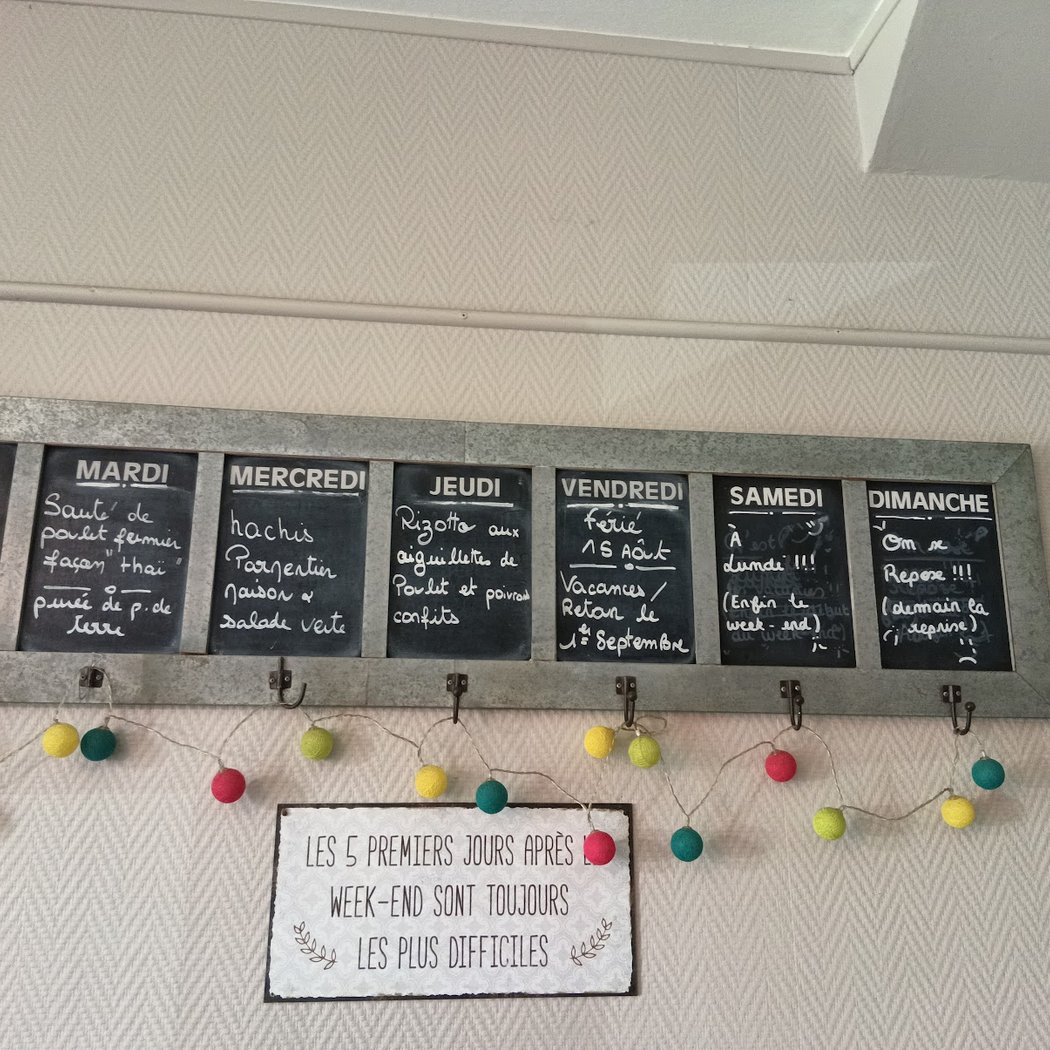 MARDI
Sauté de
poulet fermier
façon "thaï"
purée de p. de
terre
MERCREDI
hachis
Parmentier
maison &
salade verte
JEUDI
Rizotto aux
aiguillettes de
Poulet et poivrons
confits
VENDREDI
Férié
15 Août
Vacances /
Retour le
1er Septembre
SAMEDI
À
Lundi !!!
(Enfin le
week-end)
DIMANCHE
On se
Repose !!!
(demain la
reprise)
LES 5 PREMIERS JOURS APRÈS
WEEK-END SONT TOUJOURS
LES PLUS DIFFICILES